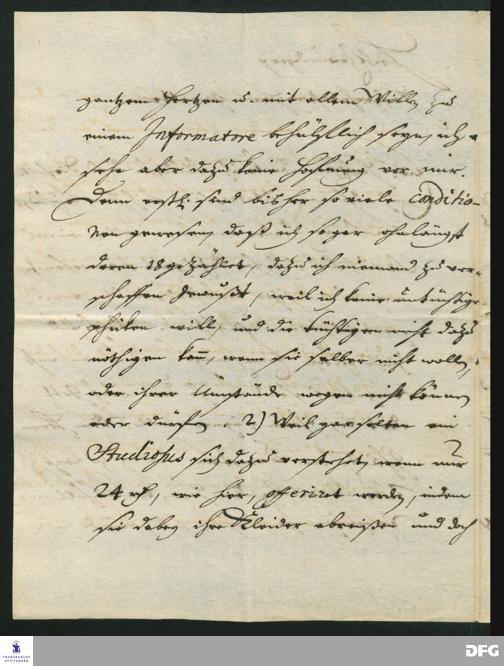 gantzem Hertzen u. mit allem Willen zu
einem Informatore behülflich seyn, ich
sehe aber dazu keine Hofnung vor mir.
Denn erstl. sind bisher so viele Conditio-
nen gewesen, daß ich sogar ohnlängst
deren 18 gezählet, dazu ich niemand zu ver-
schaffen gewußt, weil ich keine untüchtige
schicken will, und die tüchtigen nicht dazu
nöthigen kan, wenn sie selber nicht wollen,
oder ihrer Umstände wegen nicht können
oder dürfen. 2) Weil gar selten ein
Studiosus sich dazu verstehet, wenn nur
24 rh, wie hier, offeriret werden, indem
sie dabey ihre Kleider abreißen und doch
FRANCKESCHE STIFTUNGEN
DFG